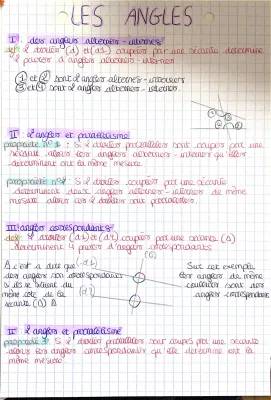 LES ANGLES
I des angles alternes-internes
def: 2 droites (d) et (d1) coupées par une sécante détermine
2 paires d'angles alternes-internes
① et ② sont 2 angles alternes-internes
③ et ④ sont 2 angles alternes-internes.
II 2 angles et parallélisme
propriété n°1 : Si 2 droites parallèles sont coupés par une
sécante alors les angles alternes-internes qu'elles
déterminent ont la même mesure.
propriété n°2 : Si 2 droites coupées par une sécante
déterminent deux angles alternes-internes de même
mesure alors ces 2 droites sont parallèles.
III angles correspondants
def: 2 droites (d1) et (d2) coupées par une sécante (Δ)
déterminent 4 paires d'angles correspondants
(Δ)
(d1)
(d2)
des angles son correspondants
même côté de la
sécante (Δ)
Sur cet exemple
les angles de même
couleur sont des
angles correspondants
2 angles et parallélisme
propriété 3: Si 2 droites parallèles sont coupés par une sécante
alors les angles correspondants qu'elle détermine ont la
même mesure